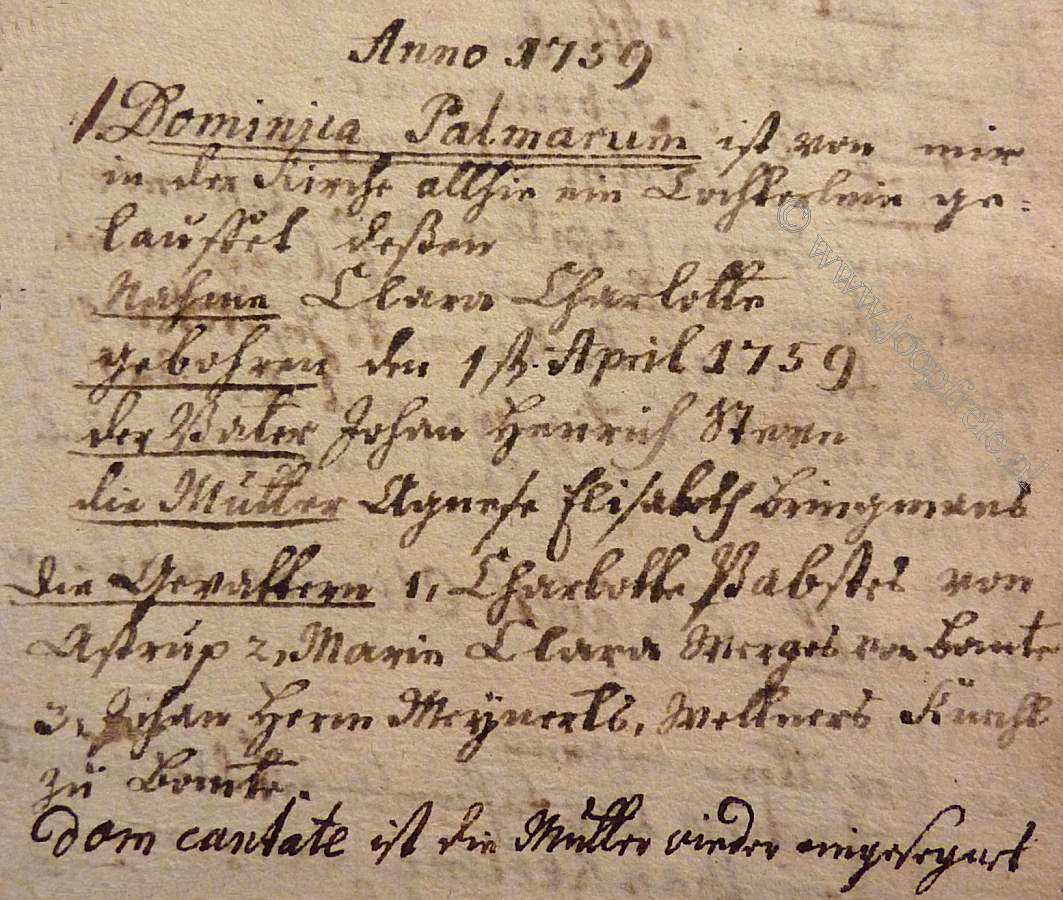 Anno 1759
1. Dominica Palmarum ist von mir
in der Kirche allhie ein Töchterlein ge=
tauffet deßen
Nahme Clara Charlotte
gebohren den 1st. April 1759
der Vater Johan Henrich
die Mutter Agnese Elisabeth Bringmans
die Gevattern 1, Charlotte Pabstes von
Astrup 2, Marie Clara von Bomte
3, Johan Herm Meynerts, Weltners Knecht
zu Bomte.
Dom cantate ist die Mutter wieder eingesegnet
© www.